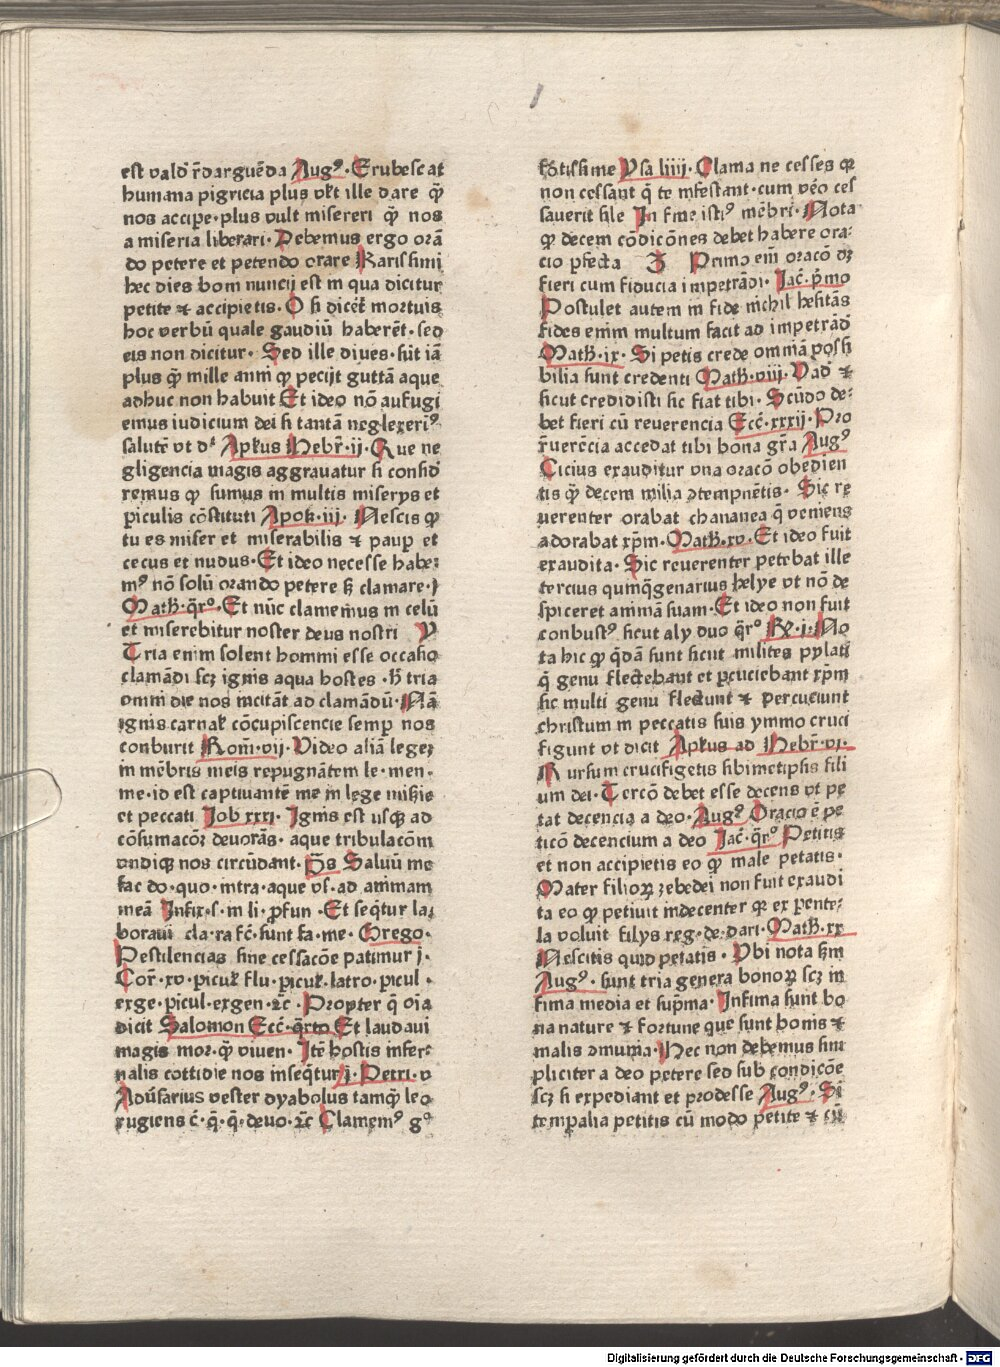 est vald r̄darguēda Augꝰ. Erubescat
humana pigricia plus vƚt ille dare qͣ̄
nos accipe. plus vult misereri qͣ̄ nos
a miseria liberari. Debemus ergo orā
do petere et petendo orare Rarissimi
hec dies boni nuncij est in qua dicitur
petite ⁊ accipietis. O si dicer̄t mortuis
hoc verbū quale gaudiū haberēt. sed
eis non dicitur. Sed ille diues. sūt iā
plus qͣ̄ mille anni ꝙ pecijt guttā aque
adhuc non habuit Et ideo nō aufugi
emus iudicium dei si tantā neglexeriꝰ
salutē vt dꝰ Apƚus Hebr̄. ij. Que ne
gligencia magis aggrauatur si consid̄
remus ꝙ sumus in multis miserijs et
piculis cōstituti Apok. iij. Nescis ꝙ
tu es miser et miserabilis ⁊ paup et
cecus et nudus. Et ideo necesse habe⸗
mꝰ nō solū orando petere sꝫ clamare. j
Math. q̄rº. Et nūc clamemus in celū
et miserebitur noster deus nostri V
Tria enim solent homini esse occasio
clamādi scꝫ ignis aqua hostes. h̄ tria
omni die nos incitāt ad clamādū. Nā
ignis carnaƚ cōcupiscencie semp nos
conburit Rom̄. vij. Video aliā legeꝫ
in mēbris meis repugnātem le. men.
me. id est captiuantē me in lege misīe
et peccati Iob xxxi. Ignis est vsqꝫ ad
cōsumacōꝫ deuorās. aque tribulacōm
vndiqꝫ nos circūdant. p̄s Saluū me
fac do. quo. intra. aque vſ. ad animam
meā Infix. s. in li. ꝓfun. Et seq̄tur la⸗
boraui cla. ra fc̄. sunt fa. me. Grego.
Pestilencias sine cessacōe patimur j.
Cor̄. xv. picuƚ flu. picuƚ. latro. picul.
exge. picul. exgen. ⁊c̄. Propter q̄ oīa
dicit Salomon Ecc̄. q̄rto Et laudaui
magis mor. qͣ̄ viuen. Itē hostis infer⸗
nalis cottidie nos inseq̄tur j. Petri. v
Adūsarius vester dyabolus tamqͣ̄ leo
rugiens c̄. q̄. q̄. deuo. ⁊c̄ Clamemꝰ gº
fōtissime Psa liiij. Clama ne cesses qꝛ
non cessant q̄ te infestant. cum v̄o ces
sauerit sile In fine istiꝰ mēbri. Nota
ꝙ decem cōdicōnes debet habere ora⸗
cio ꝑfecta 3 Primo eīm oracō dꝫ
fieri cum fiducia impetrādi. Iac̄. p̄mo
Postulet autem in fide nichil hesitās
fides enim multum facit ad impetrād̄
Math. ix. Si petis crede omniā possi
bilia sunt credenti Math. viij. Vad̄ ⁊
sicut credidisti sic fiat tibi. Scūdo de⸗
bet fieri cū reuerencia Ecc̄. xxxij. Pro
r̄uerēcia accedat tibi bona gr̄a Augꝰ
Cicius exauditur vna oracō obedien
tis qͣ̄ decem milia ꝯtempnētis. Sic re
uerenter orabat chananea q̄ veniens
adorabat xp̄m. Math. xv. Et ideo fuit
exaudita. Sic reuerenter petebat ille
tercius quinqͣ̄genarius helye vt nō de
spiceret animā suam. Et ideo non fuit
conbustꝰ sicut alij duo q̄rº Re. i. No
ta hic ꝙ q̄dā sunt sicut milites pylati
q̄ genu flectebant et pcuciebant xp̄m
sic multi genu flectunt ⁊ percuciunt
christum in peccatis suis ymmo cruci
figunt vt dicit Apƚus ad Hebr̄. vi.
Rursum crucifigetis sibimetipsis fili
um dei. Tercō debet esse decens vt pe
tat decencia a deo. Augꝰ Oracio ē pe
ticō decencium a deo Iac̄. q̄rº Petitis
et non accipietis eo ꝙ male petatis.
Mater filioꝝ zebedei non fuit exaudi
ta eo ꝙ petiuit indecenter qꝛ ex pente⸗
la voluit filijs reg. de. dari. Math. xx
Nescitis quid petatis. Vbi nota sm̄
Augꝰ. sunt tria genera bonoꝝ scꝫ in
fima media et sup̄ma. Infima sunt bo
na nature ⁊ fortune que sunt bonis ⁊
malis ꝯmunia. Hec non debemus sim
pliciter a deo petere sed sub condicōe
scꝫ si expediant et prodesse Augꝰ. Si
temp̄alia petitis cū modo petite ⁊ cū
Digitalisierung gefördert durch die Deutsche Forschungsgemeinschaft · DFG